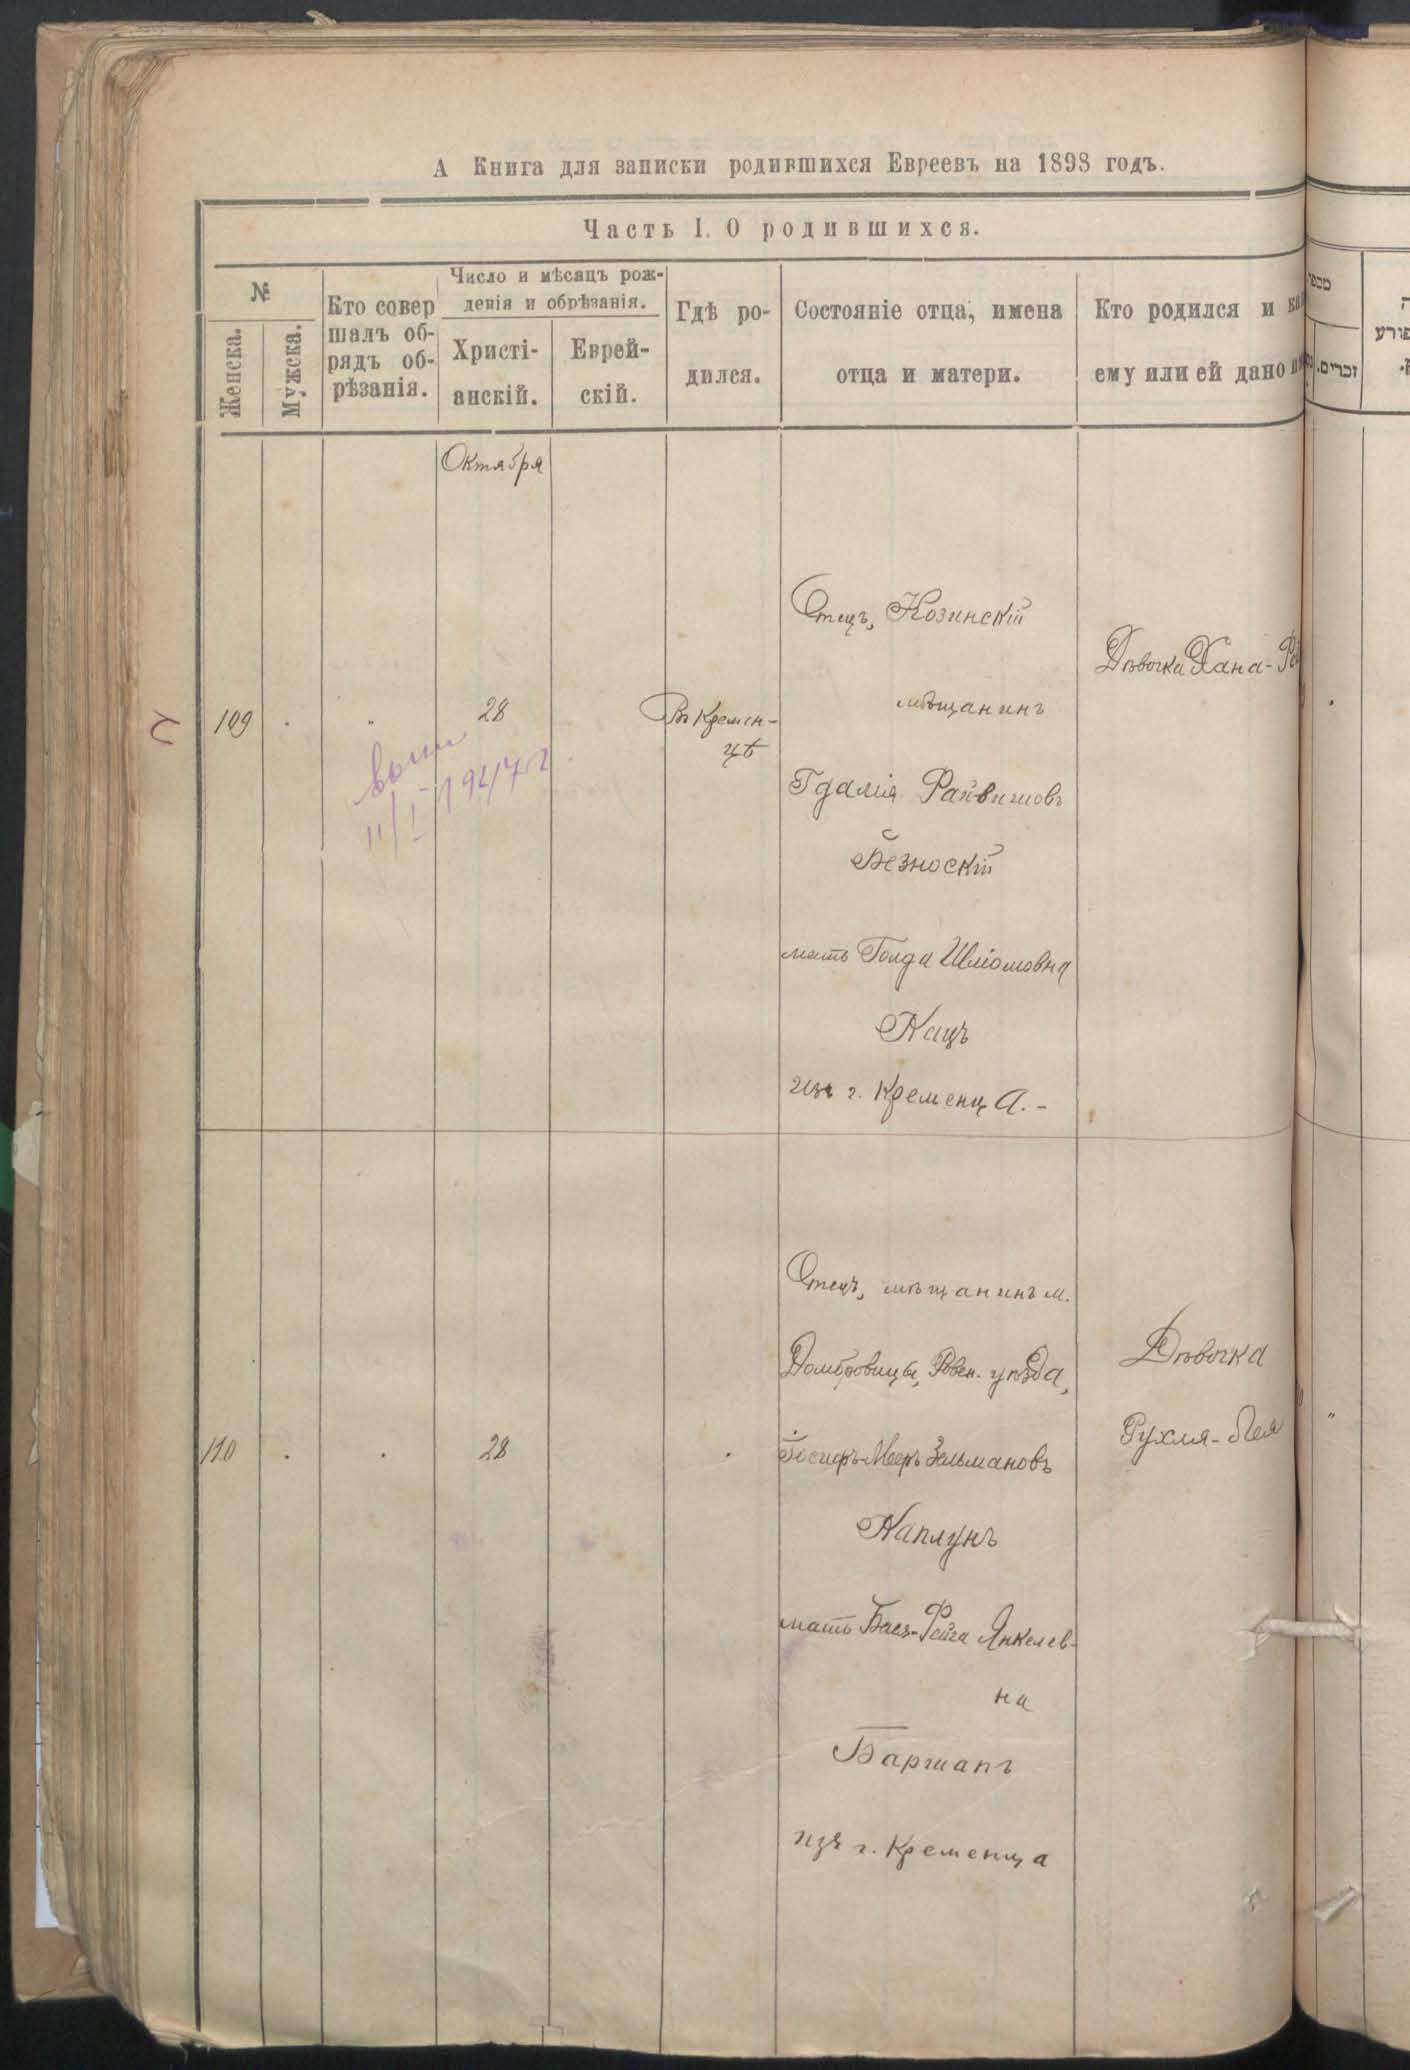 А Книга для записки родившихся Евреевъ на 1898 годъ.
Часть I. О родившихся.
№
Женска.
Мужска.
Кто совер
шалъ об-
рядъ об-
рѣзанія.
Число и мѣсяцъ рож-
денія и обрѣзанія.
Христі-
анскій.
Еврей-
скій.
Гдѣ ро-
дился.
Состояніе отца, имена
отца и матери.
Кто родился и
ему или ей дано
Октября
109
28
Въ Кремен-
цѣ
Отецъ, Козинскій
мѣщанинъ
Гдалія
Безноскій
мать Голда Шліомовна
Кацъ
изъ г. Кременца.-
Дѣвочка Хана-
11/I 1947 г.
110
28
Отецъ, мѣщанинъ м.
Домбровицы, Ровен. уѣзда,
Іосифъ-Мееръ Зельмановъ
Каплунъ
мать Фейга Янкелев-
на
изъ г. Кременца
Дѣвочка
Рухля-Лея
זכרים.